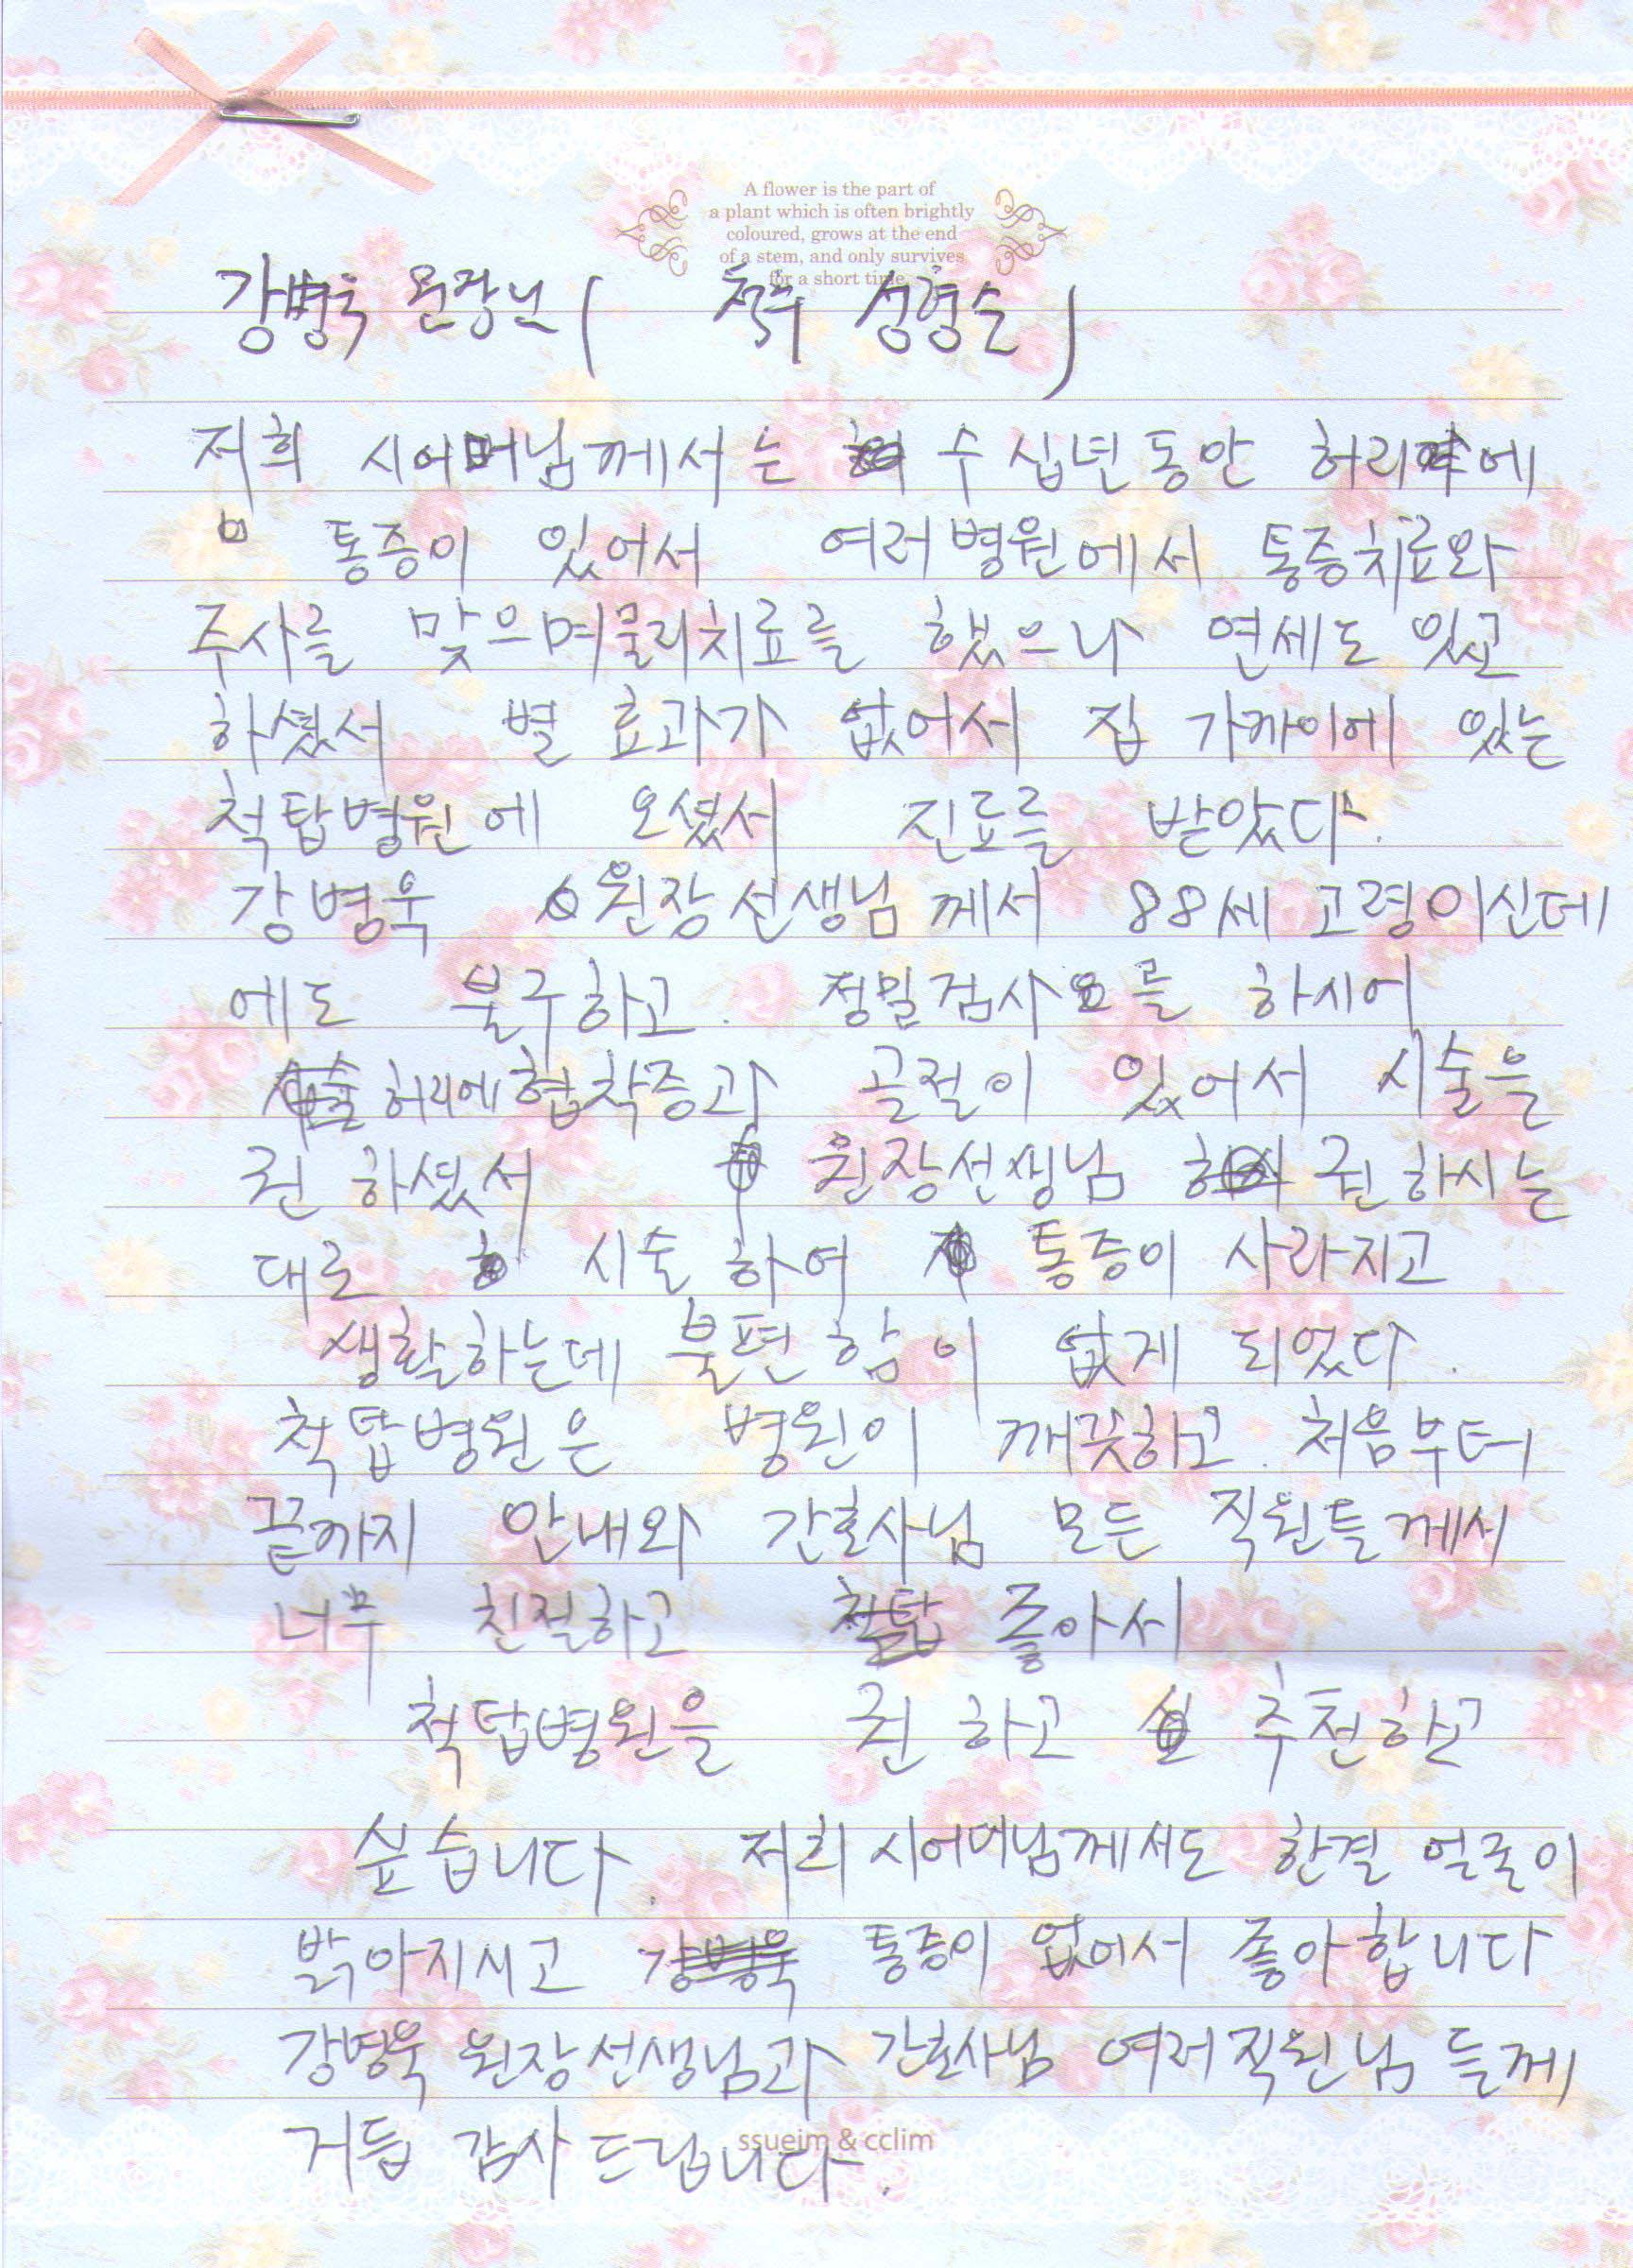 A flower is the part of
a plant which is often brightly
coloured, grows at the end
of a stem, and only survives
for a short time.
강병욱 원장님 ( 척추 성형술 )
저희 시어머님께서는 수 십년 동안 허리에
통증이 있어서 여러병원에서 통증치료와
주사를 맞으며물리치료를 했으나 연세도 있고
하셨서 별 효과가 없어서 집 가까이에 있는
척탑병원에 오셨서 진료를 받았다.
강병욱 원장선생님 께서 88세 고령이신데
에도 불구하고. 정밀검사를 하시어
허리에협착증과 골절이 있어서 시술을
권 하셨서 원장선생님 권 하시는
대로 시술 하여 통증이 사라지고
생활하는데 불편 함 이 없게 되었다.
척탑병원은 병원이 깨끗하고. 처음부터
끝까지 안내와 간호사님 모든 직원들께서
너무 친절하고 좋아서
척탑병원을 권 하고 추천하고
싶습니다. 저희 시어머님께서도 한결 얼굴이
밝아지시고 통증이 없어서 좋아합니다
강병욱 원장선생님과 간호사님 여러직원님 들께
거듭 감사 드립니다.
ssueim & cclim